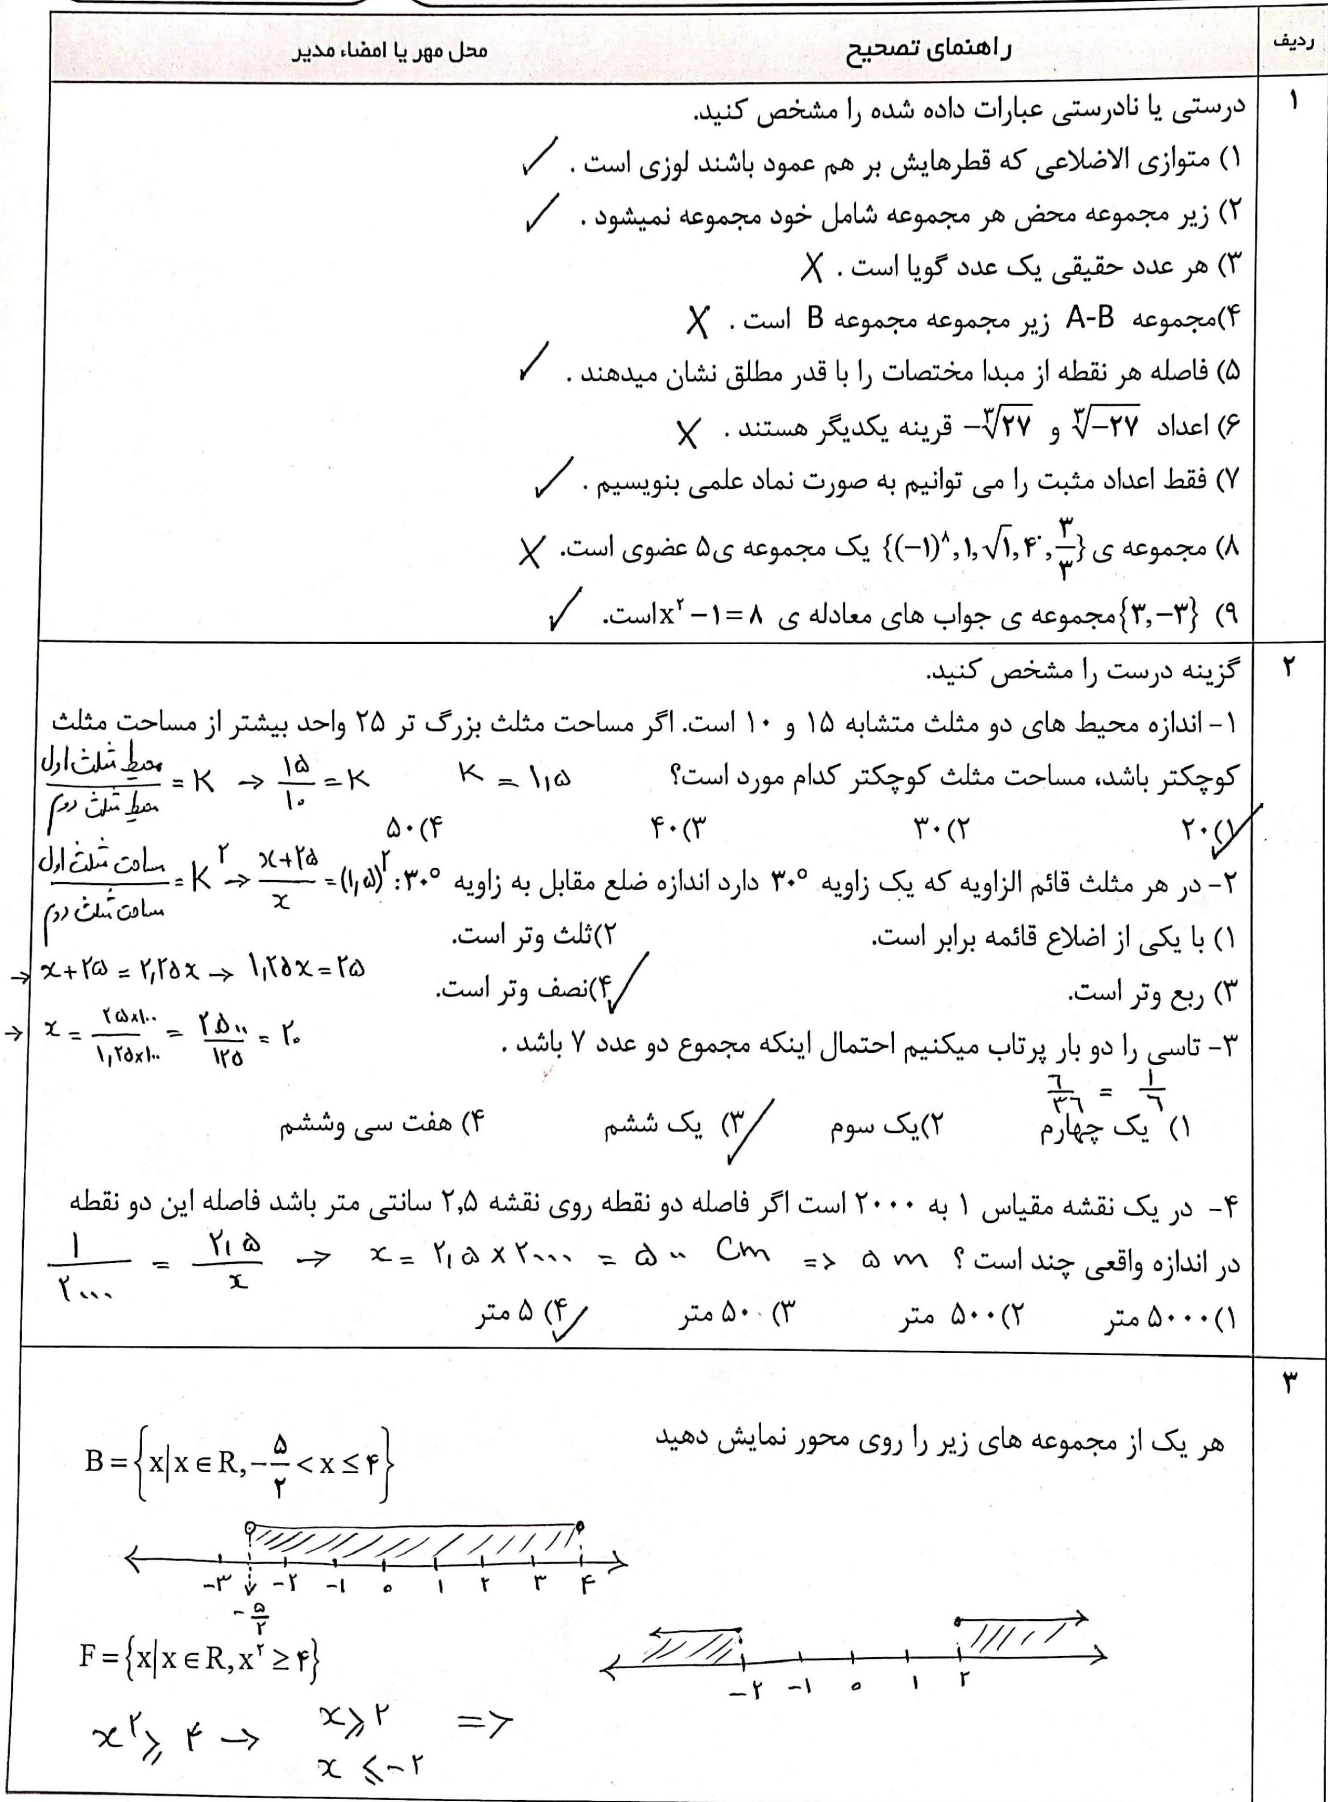 ردیف
راهنمای تصحیح
محل مهر یا امضاء مدیر
۱
درستی یا نادرستی عبارات داده شده را مشخص کنید.
۱) متوازی الاضلاعی که قطرهایش بر هم عمود باشند لوزی است . ✓
۲) زیر مجموعه محض هر مجموعه شامل خود مجموعه نمیشود . ✓
۳) هر عدد حقیقی یک عدد گویا است . X
۴)مجموعه A-B زیر مجموعه مجموعه B است . X
۵) فاصله هر نقطه از مبدا مختصات را با قدر مطلق نشان میدهند . ✓
۶) اعداد ∛−۲۷ و −∛۲۷ قرینه یکدیگر هستند . X
۷) فقط اعداد مثبت را می توانیم به صورت نماد علمی بنویسیم . ✓
۸) مجموعه ی {(−۱)^۸, ۱, √۱, ۴^۰, ۳/۳} یک مجموعه ی۵ عضوی است. X
۹) {۳,−۳}مجموعه ی جواب های معادله ی x^۲ −۱=۸است. ✓
۲
گزینه درست را مشخص کنید.
۱- اندازه محیط های دو مثلث متشابه ۱۵ و ۱۰ است. اگر مساحت مثلث بزرگ تر ۲۵ واحد بیشتر از مساحت مثلث
کوچکتر باشد، مساحت مثلث کوچکتر کدام مورد است؟
محیط مثلث اول / محیط مثلث دوم = K → ۱۵/۱۰ = K K = ۱,۵
۱)۲۰ ✓ ۲)۳۰ ۳)۴۰ ۴)۵۰
مساحت مثلث اول / مساحت مثلث دوم = K^۲ → x+۲۵/x = (۱,۵)^۲
۲- در هر مثلث قائم الزاویه که یک زاویه ۳۰° دارد اندازه ضلع مقابل به زاویه ۳۰°:
۱) با یکی از اضلاع قائمه برابر است. ۲)ثلث وتر است.
→ x+۲۵ = ۲,۲۵x → ۱,۲۵x = ۲۵
۳) ربع وتر است. ۴)نصف وتر است. ✓
→ x = ۲۵×۱۰۰/۱,۲۵×۱۰۰ = ۲۵۰۰/۱۲۵ = ۲۰
۳- تاسی را دو بار پرتاب میکنیم احتمال اینکه مجموع دو عدد ۷ باشد .
۶/۳۶ = ۱/۶
۱) یک چهارم ۲)یک سوم ۳) یک ششم ✓ ۴) هفت سی وششم
۴- در یک نقشه مقیاس ۱ به ۲۰۰۰ است اگر فاصله دو نقطه روی نقشه ۲,۵ سانتی متر باشد فاصله این دو نقطه
در اندازه واقعی چند است ؟
۱/۲۰۰۰ = ۲,۵/x → x = ۲,۵ × ۲۰۰۰ = ۵۰۰ Cm => ۵ m
۱)۵۰۰۰ متر ۲)۵۰۰ متر ۳)۵۰ متر ۴) ۵ متر ✓
۳
هر یک از مجموعه های زیر را روی محور نمایش دهید
B = {x|x ∈ R, −۵/۲ < x ≤ ۴}
−۳ −۲ −۱ ۰ ۱ ۲ ۳ ۴
−۵/۲
F = {x|x ∈ R, x^۲ ≥ ۴}
−۲ −۱ ۰ ۱ ۲
x^۲ ≥ ۴ → x ≥ ۲ =>
x ≤ −۲